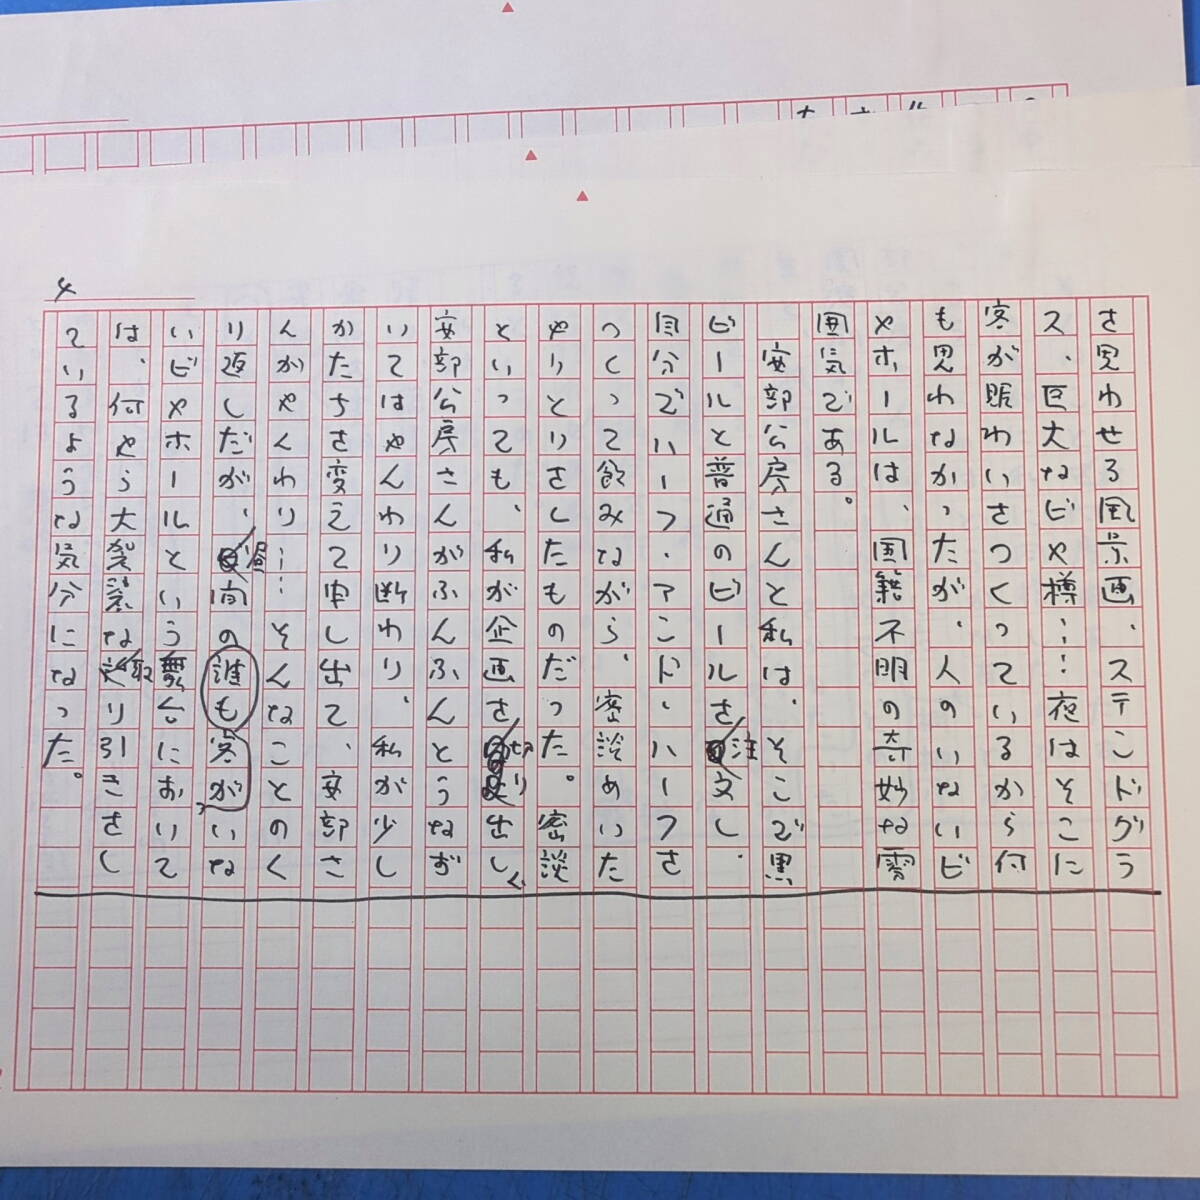 4
を思わせる風景画、ステンドグラ
ス、巨大なビヤ樽……夜はそこに
客が賑わいさつくっているから何
も思わなかったが、人のいないビ
ヤホールは、国籍不明の奇妙な雰
囲気である。
安部公房さんと私は、そこで黒
ビールと普通のビールを注文し、
自分でハーフ・アンド・ハーフを
つくって飲みながら、密談めいた
やりとりをしたものだった。密談
といっても、私が企画を切り出し、
安部公房さんがふんふんとうなず
いてはやんわり断わり、私が少し
かたちを変えて申し出て、安部さ
んがやんわり……そんなことのく
り返しだが、昼間の客が誰もいな
いビヤホールという舞台において
は、何やら大袈裟な取り引きをし
ているような気分になった。